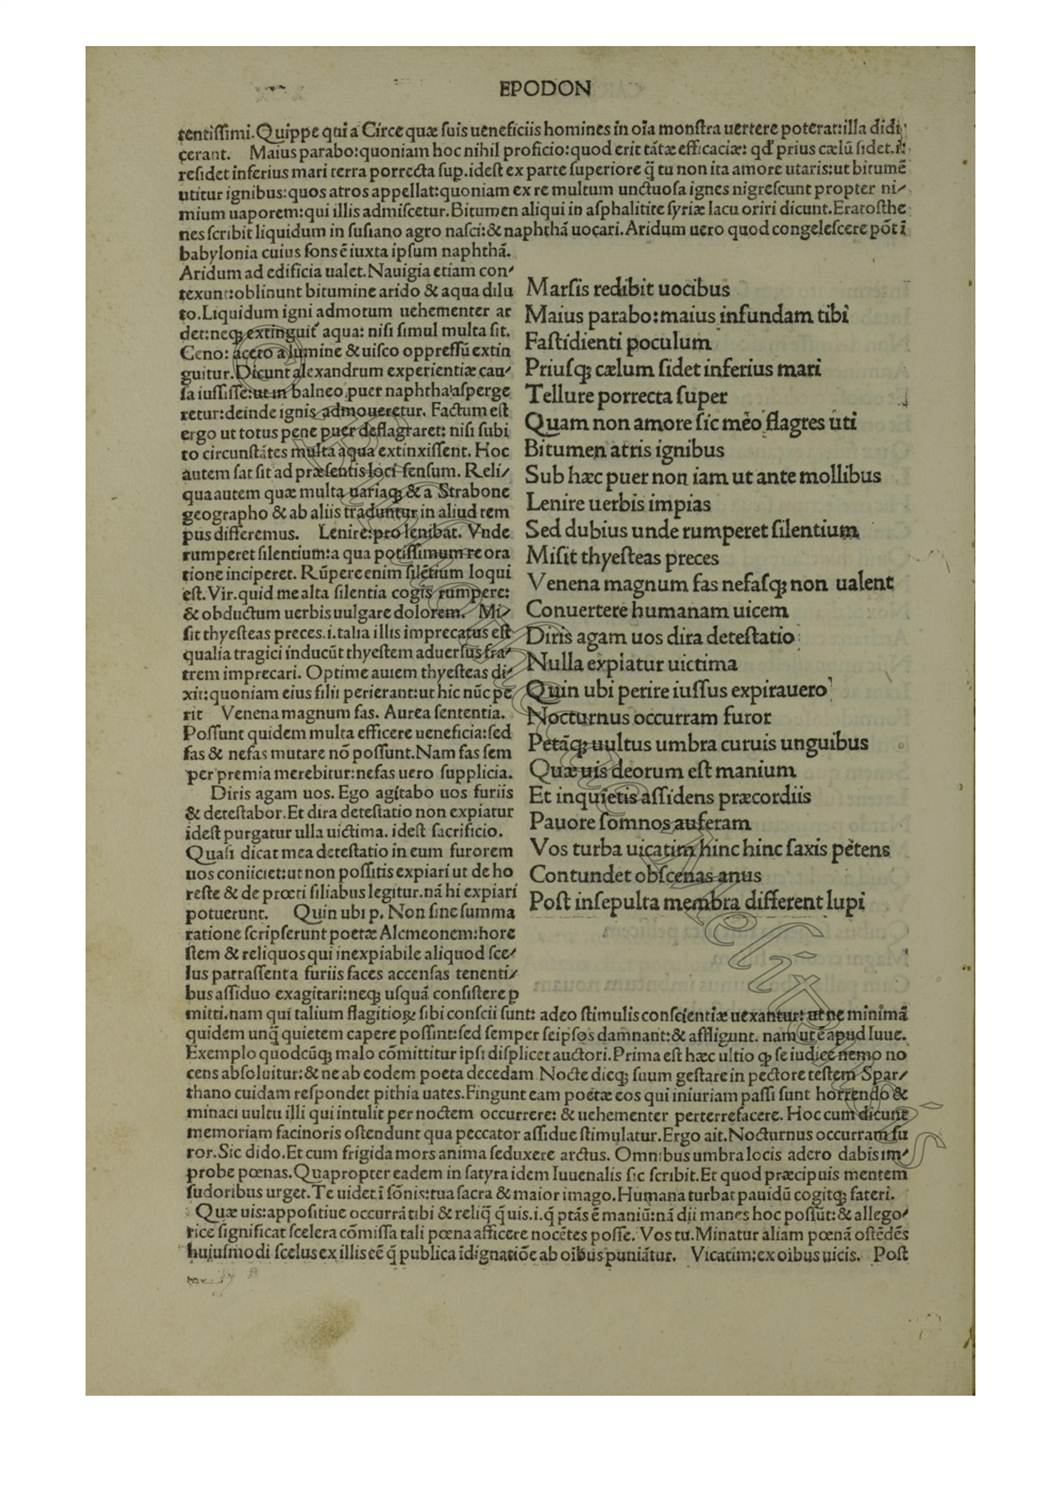 EPODON
tentiſſimi.Quippe qui a Circe quæ ſuis ueneficiis homines in oīa monſtra uertere poterat:illa didi
cerant. Maius parabo:quoniam hoc nihil proficio:quod erit tātæ efficaciæ: qđ prius cælū ſidet.i:
reſidet inferius mari terra porrecta ſup.ideſt ex parte ſuperiore q̄ tu non ita amore utaris:ut bitumē
utitur ignibus:quos atros appellat:quoniam ex re multum unctuoſa ignes nigreſcunt propter ni/
mium uaporem:qui illis admiſcetur.Bitumen aliqui in aſphalitite ſyriæ lacu oriri dicunt.Eratoſthe
nes ſcribit liquidum in ſuſiano agro naſci:& naphthā uocari.Aridum uero quod congeleſcere pōt ī
babylonia cuius fons ē iuxta ipſum naphthā.
Aridum ad edificia ualet.Nauigia etiam con/
texunt:oblinunt bitumine arido & aqua dilu
to.Liquidum igni admotum uehementer ar
det:neq; extinguit̄ aqua: niſi ſimul multa ſit.
Ceno: aceto alumine & uiſco oppreſſū extin
guitur.Dicunt alexandrum experientiæ cau/
ſa iuſſiſſe:ut in balneo puer naphtha aſperge
retur:deinde ignis admoueretur. Factum eſt
ergo ut totus pene puer deflagraret: niſi ſubi
to circunſtātes multa aqua extinxiſſent. Hoc
autem ſat ſit ad præſentis loci ſenſum. Reli/
qua autem quæ multa uariaq; & a Strabone
geographo & ab aliis traduntur in aliud tem
pus differemus. Lenire:pro lenibat. Vnde
rumperet ſilentium:a qua potiſſimum re ora
tione inciperet. Rūpere enim ſilētium loqui
eſt.Vir.quid me alta ſilentia cogis rumpere:
& obductum uerbis uulgare dolorem. Mi/
ſit thyeſteas preces.i.talia illis imprecatus eſt
qualia tragici inducūt thyeſtem aduerſus fra/
trem imprecari. Optime autem thyeſteas di/
xit:quoniam eius filii perierant:ut hic nūc pe
rit Venena magnum fas. Aurea ſententia.
Poſſunt quidem multa efficere ueneficia:ſed
fas & nefas mutare nō poſſunt.Nam fas ſem
per premia merebitur:nefas uero ſupplicia.
Diris agam uos. Ego agitabo uos furiis
& deteſtabor.Et dira deteſtatio non expiatur
ideſt purgatur ulla uictima. ideſt ſacrificio.
Quaſi dicat mea deteſtatio in eum furorem
uos coniiciet:ut non poſſitis expiari ut de ho
reſte & de prœti filiabus legitur.nā hi expiari
potuerunt. Quin ubi p. Non ſine ſumma
ratione ſcripſerunt poetæ Alcmeonem:hore
ſtem & reliquos qui inexpiabile aliquod ſce/
lus patraſſent a furiis faces accenſas tenenti/
bus aſſiduo exagitari:neq; uſquā conſiſtere p
Marſis redibit uocibus
Maius parabo:maius infundam tibi
Faſtidienti poculum
Priuſq; cælum ſidet inferius mari
Tellure porrecta ſuper
Quam non amore ſic meo flagres uti
Bitumen atris ignibus
Sub hæc puer non iam ut ante mollibus
Lenire uerbis impias
Sed dubius unde rumperet ſilentium
Miſit thyeſteas preces
Venena magnum fas nefaſq; non ualent
Conuertere humanam uicem
Diris agam uos dira deteſtatio
Nulla expiatur uictima
Quin ubi perire iuſſus expirauero
Nocturnus occurram furor
Petāq; uultus umbra curuis unguibus
Quæ uis deorum eſt manium
Et inquietis aſſidens præcordiis
Pauore ſomnos auferam
Vos turba uicatim hinc hinc ſaxis petens
Contundet obſcenas anus
Poſt inſepulta membra different lupi
mitti.nam qui talium flagitioꝝ ſibi conſcii ſunt: adeo ſtimulis conſcientiæ uexantur: ut ne minimā
quidem unq̄ quietem capere poſſint:ſed ſemper ſeipſos damnant:& affligunt. nam ut ē apud Iuue.
Exemplo quodcūq; malo cōmittitur ipſi diſplicet auctori.Prima eſt hæc ultio ꝙ ſe iudice nemo no
cens abſoluitur:& ne ab eodem poeta decedam Nocte dieq; ſuum geſtare in pectore teſtem Spar/
thano cuidam reſpondet pithia uates.Fingunt eam poetæ eos qui iniuriam paſſi ſunt horrendo &
minaci uultu illi qui intulit per noctem occurrere: & uehementer perterrefacere. Hoc cum dicunt
memoriam facinoris oſtendunt qua peccator aſſidue ſtimulatur.Ergo ait.Nocturnus occurram fu
ror.Sic dido.Et cum frigida mors anima ſeduxere artus. Omnibus umbra locis adero dabis im/
probe pœnas.Quapropter eadem in ſatyra idem Iuuenalis ſic ſcribit.Et quod præcipuis mentem
ſudoribus urget.Te uidet ī ſōnis:tua ſacra & maior imago.Humana turbat pauidū cogitq; fateri.
Quæ uis:appoſitiue occurrā tibi & reliq̄ q̄ uis.i.q̄ ptās ē maniū:nā dii manes hoc poſſūt:& allego/
rice ſignificat ſcelera cōmiſſa tali pœna afficere nocētes poſſe. Vos tu.Minatur aliam pœnā oſtēdēs
huiuſmodi ſcelus ex illis eē q̄ publica īdignatiōe ab oībus puniātur. Vicatim:ex oībus uicis. Poſt